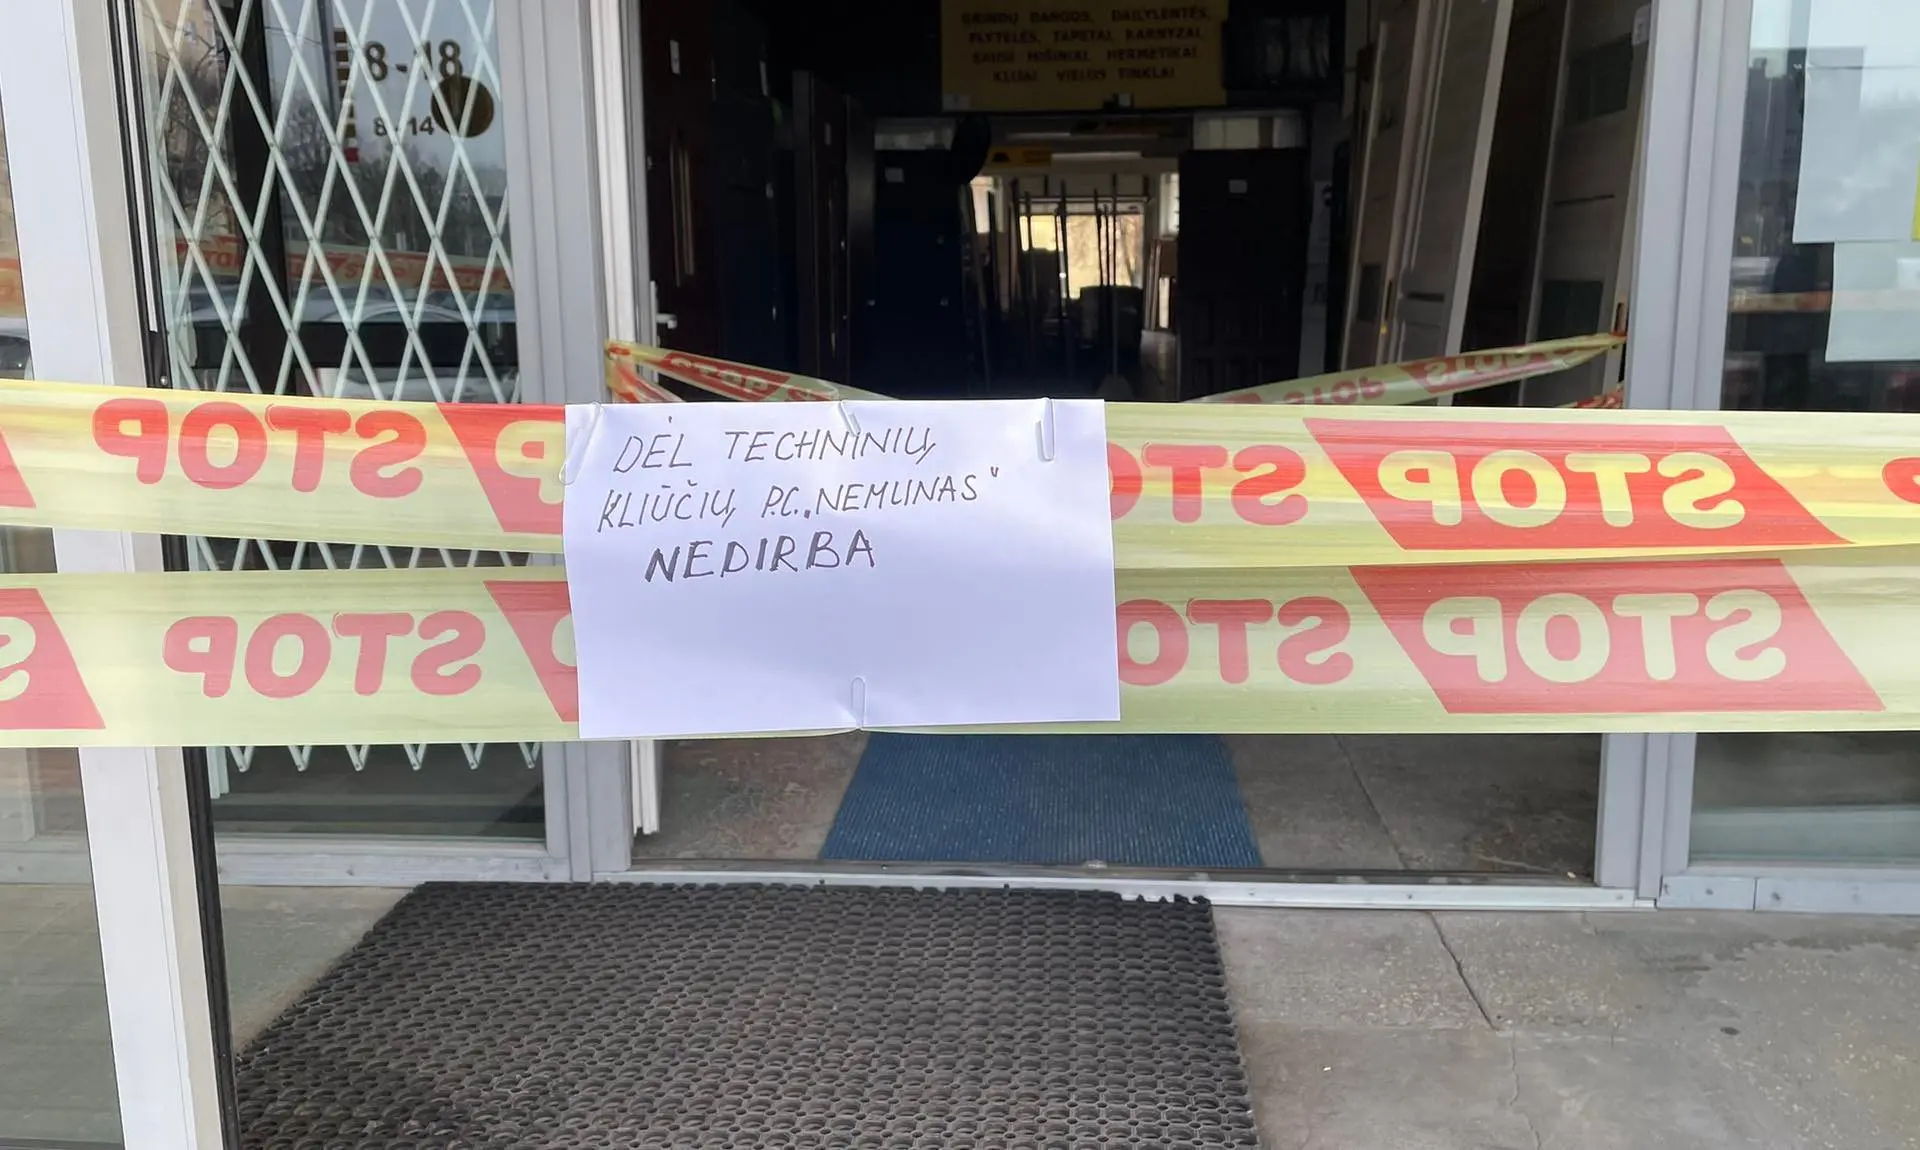 8-18
8-14
GRINDŲ DANGOS, DAILYLENTĖS,
PLYTELĖS, TAPETAI, KARNYZAI,
SAUSI MIŠINIAI, HERMETIKAI
KLIJAI VIELOS TINKLAI
STOP STOP
STOP STOP STOP STOP
DĖL TECHNINIŲ
KLIŪČIŲ P.C. „NEMUNAS"
NEDIRBA
STOP STOP STOP